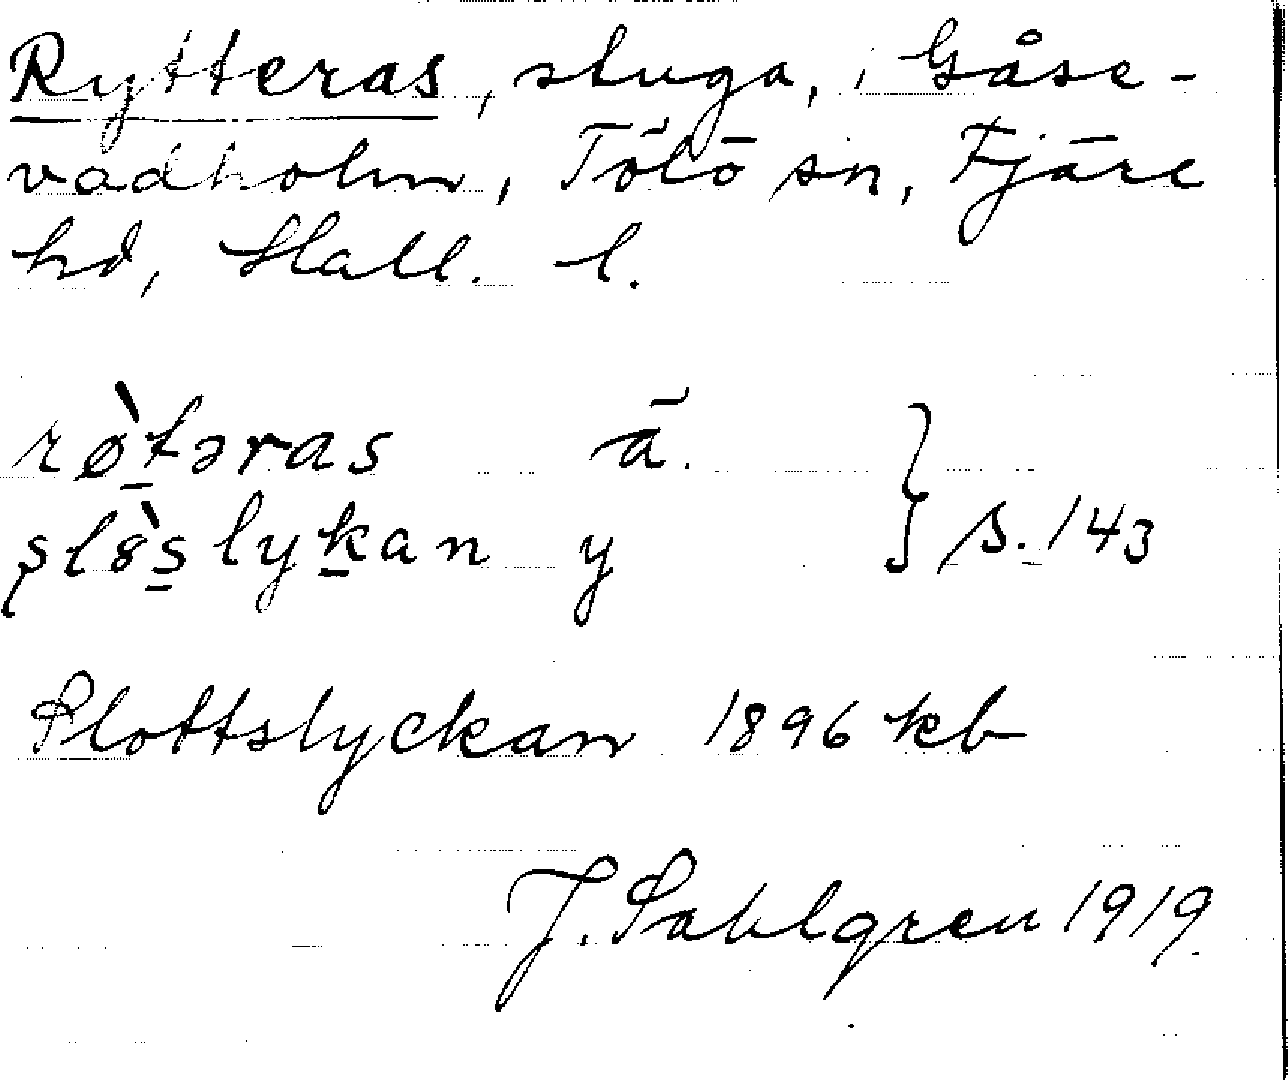 Rytteras, stuga, i Gåse-
vadholm, Tölö sn, Fjäre
hd, Hall. l.
rø̀t̠əras ä. } s. 143
slòs̠lyk̠an y
Slottslyckan 1896 kb
J. Sahlgren 1919